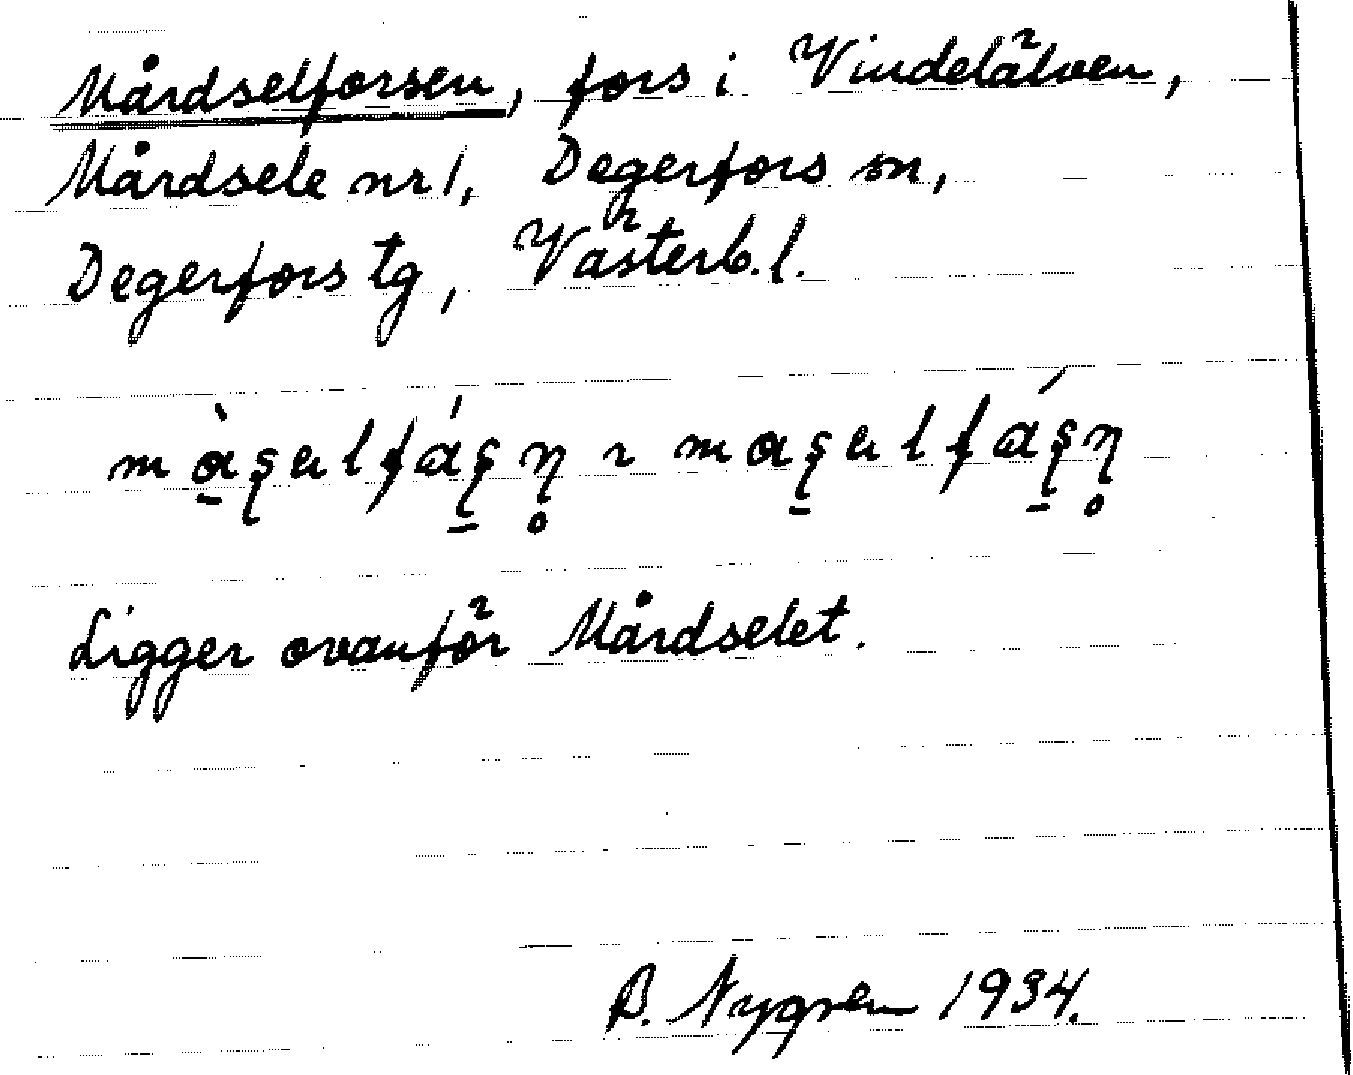 Mårdselforsen, fors i Vindelälven,
Mårdsele nr 1, Degerfors sn,
Degerfors tg, Västerb. l.
Ligger ovanför Mårdselet.
B. Nygren 1934.